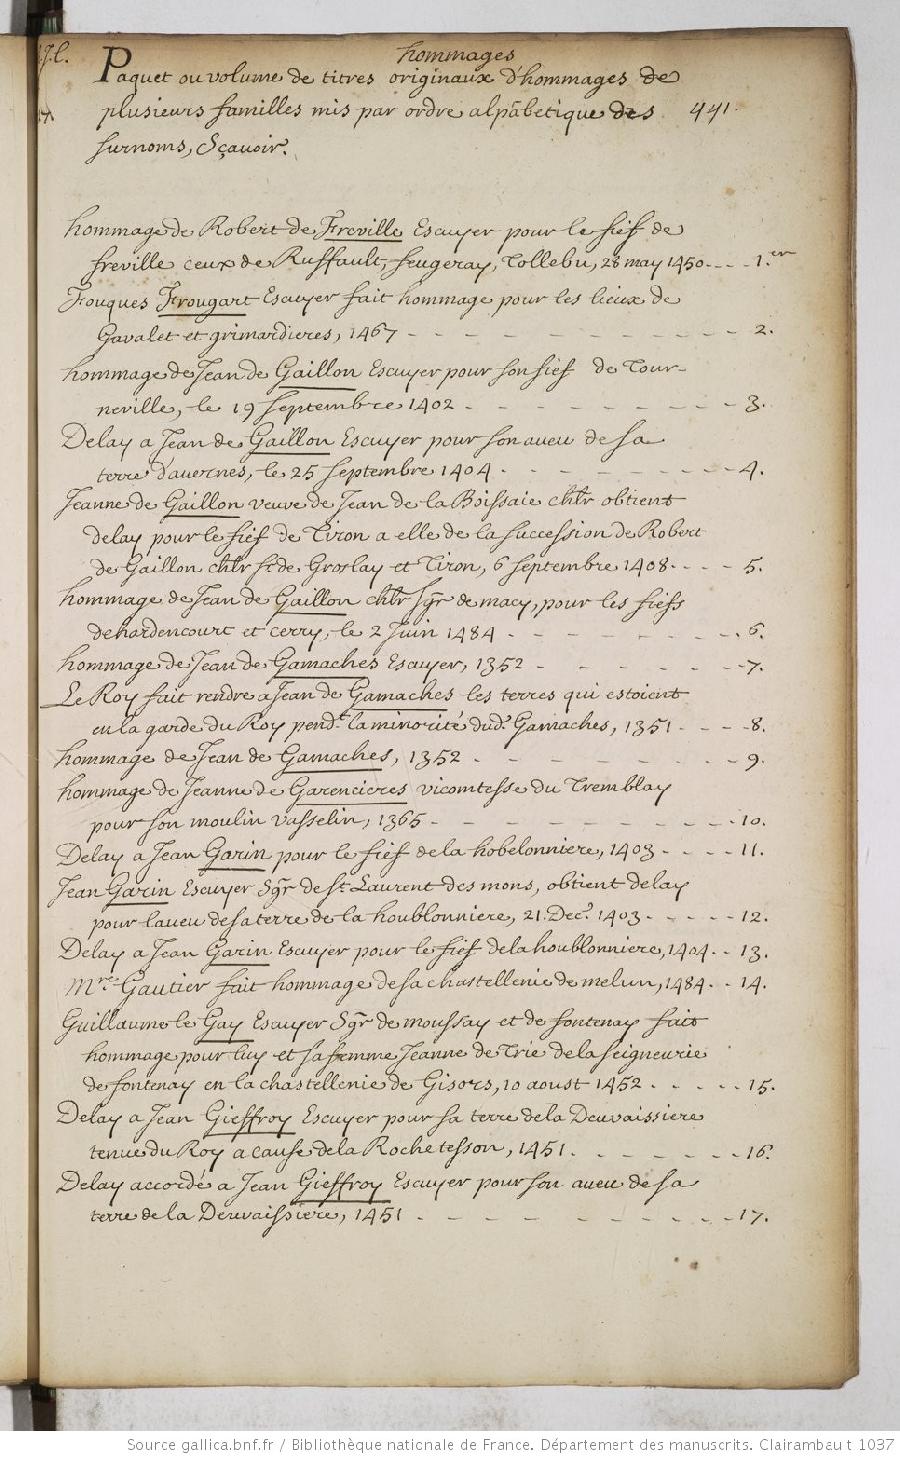 hommages
Paquet ou volume de titres originaux d'hommages de
plusieurs familles mis par ordre alpãbetique des 441.
surnoms, Sçavoir.
hommage de Robert de Freville Escuyer pour le fief de
freville ceux de Ruffault, feugeray, Tollebu, 28 may 1450 - - - - 1.er
Fouques Frougart Escuyer fait hommage pour les lieux de
Gavalet et grimardieres, 1467 - - - - - - - - - - 2.
hommage de Jean de Gaillon Escuyer pour son fief de Tour-
neville, le 19 Septembre 1402 - - - - - - - - 3.
Delay a Jean de Gaillon Escuyer pour son aveu de sa
terre d'avernes, le 25 Septembre 1404 - - - - - - - 4.
Jeanne de Gaillon veuve de Jean de la Boissaie chlr obtient
delay pour le fief de Tiron a elle de la succession de Robert
de Gaillon chlr sr de Groslay et Tiron, 6 Septembre 1408 - - - - 5.
hommage de Jean de Gaillon chlr sgr de macy, pour les fiefs
de hardencourt et cerry, le 2 Juin 1484 - - - - - - - 6.
hommage de Jean de Gamaches Escuyer, 1352 - - - - - - 7.
Le Roy fait rendre a Jean de Gamaches les terres qui estoient
en la garde du Roy pend.t la minorité dud. Gamaches, 1351 - - - - 8.
hommage de Jean de Gamaches, 1352 - - - - - - - - 9.
hommage de Jeanne de Garencieres vicomtesse du Tremblay
pour son moulin vasselin, 1365 - - - - - - - - - 10.
Delay a Jean Garin pour le fief de la hobelonniere, 1403 - - - - 11.
Jean Garin Escuyer Sgr de St Laurent des mons, obtient delay
pour l'aveu de sa terre de la houblonniere, 21. Dec.e 1403 - - - - - 12.
Delay a Jean Garin Escuyer pour le fief de la houblonniere, 1404 - - 13.
Mre Gautier fait hommage de sa chastellenie de melun, 1484 - - 14.
Guillaume le Gay Escuyer Sgr de moussay et de fontenay fait
hommage pour luy et sa femme Jeanne de Trie de la seigneurie
de fontenay en la chastellenie de Gisors, 10 aoust 1452 - - - - - 15.
Delay a Jean Gieffroy Escuyer pour sa terre de la Deuvaissiere
tenue du Roy a cause de la Rochetesson, 1451 - - - - - - 16.
Delay accordé a Jean Gieffroy Escuyer pour son aveu de sa
terre de la Deuvaissiere, 1451 - - - - - - - - - 17.
Source gallica.bnf.fr / Bibliothèque nationale de France. Département des manuscrits. Clairambaut 1037